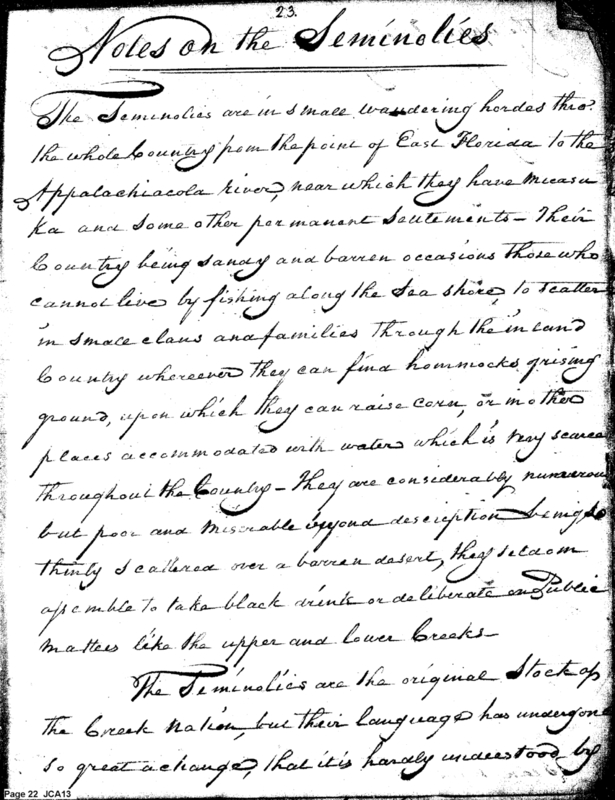 23.
Notes on the Seminolies
The Seminolies are in small wandering hordes thro'
the whole Country from the point of East Florida to the
Appalachiacola River, near which they have Micasu
ka and some other permanent settlements - Their
Country being sandy and barren occasions those who
cannot live by fishing along the sea shore, to scatter
in small clans and families through the inland
Country whereever they can find hommocks of rising
ground, upon which they can raise corn, or in other
places accommodated with water which is very scarce
throughout the Country - They are considerably numerous
but poor and miserable beyond description being so
thinly scattered over a barren desert, they seldom
assemble to take black drink or deliberate on Public
matters like the upper and lower Creeks -
The Seminolies are the original Stock of
the Creek Nation, but their language has undergone
so great a change, that it is hardly understood by
Page 22 JCA13